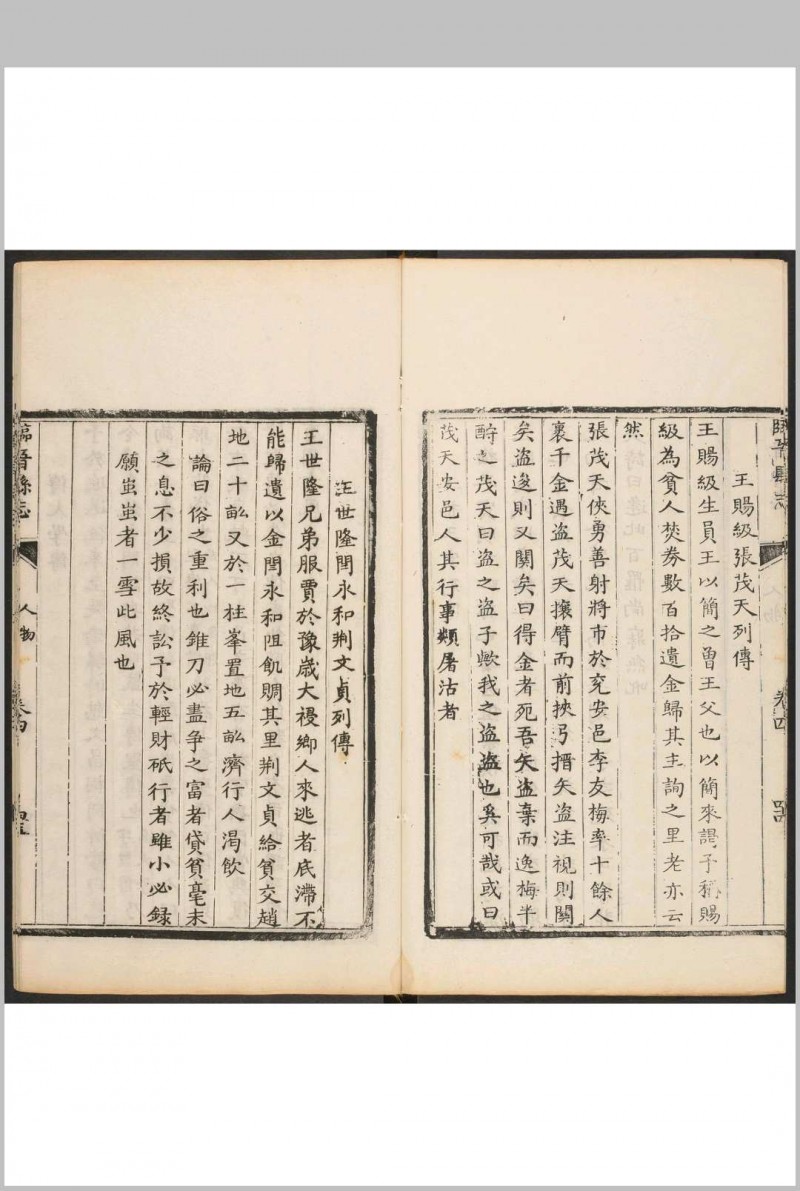 臨晉縣志
人物
卷四
王賜級張茂天列傳
王賜級生員王以簡之曾王父也以簡來謁予稱賜
級為貧人焚券數百拾遺金歸其主詢之里老亦云
然
張茂天俠勇善射將市於兗安邑李友梅率十餘人
裹千金遇盜茂天攘臂而前挾弓搢矢盜注視則關
矣盜逡則又關矣曰得金者死吾矢盜棄而逸梅半
酧之茂天曰盜之盜子歟我之盜盜也奚可哉或曰
茂天安邑人其行事類屠沽者
王世隆閆永和荆文貞列傳
王世隆兄弟服賈於豫歲大祲鄉人來逃者底滯不
能歸遺以金閆永和阻飢賙其里荆文貞給貧交趙
地二十畝又於一柱峯置地五畝濟行人渴飲
論曰俗之重利也錐刀必盡争之富者貸貧毫末
之息不少損故終訟予於輕財砥行者雖小必録
願蚩蚩者一雪此風也
臨晉縣志
人物
卷四